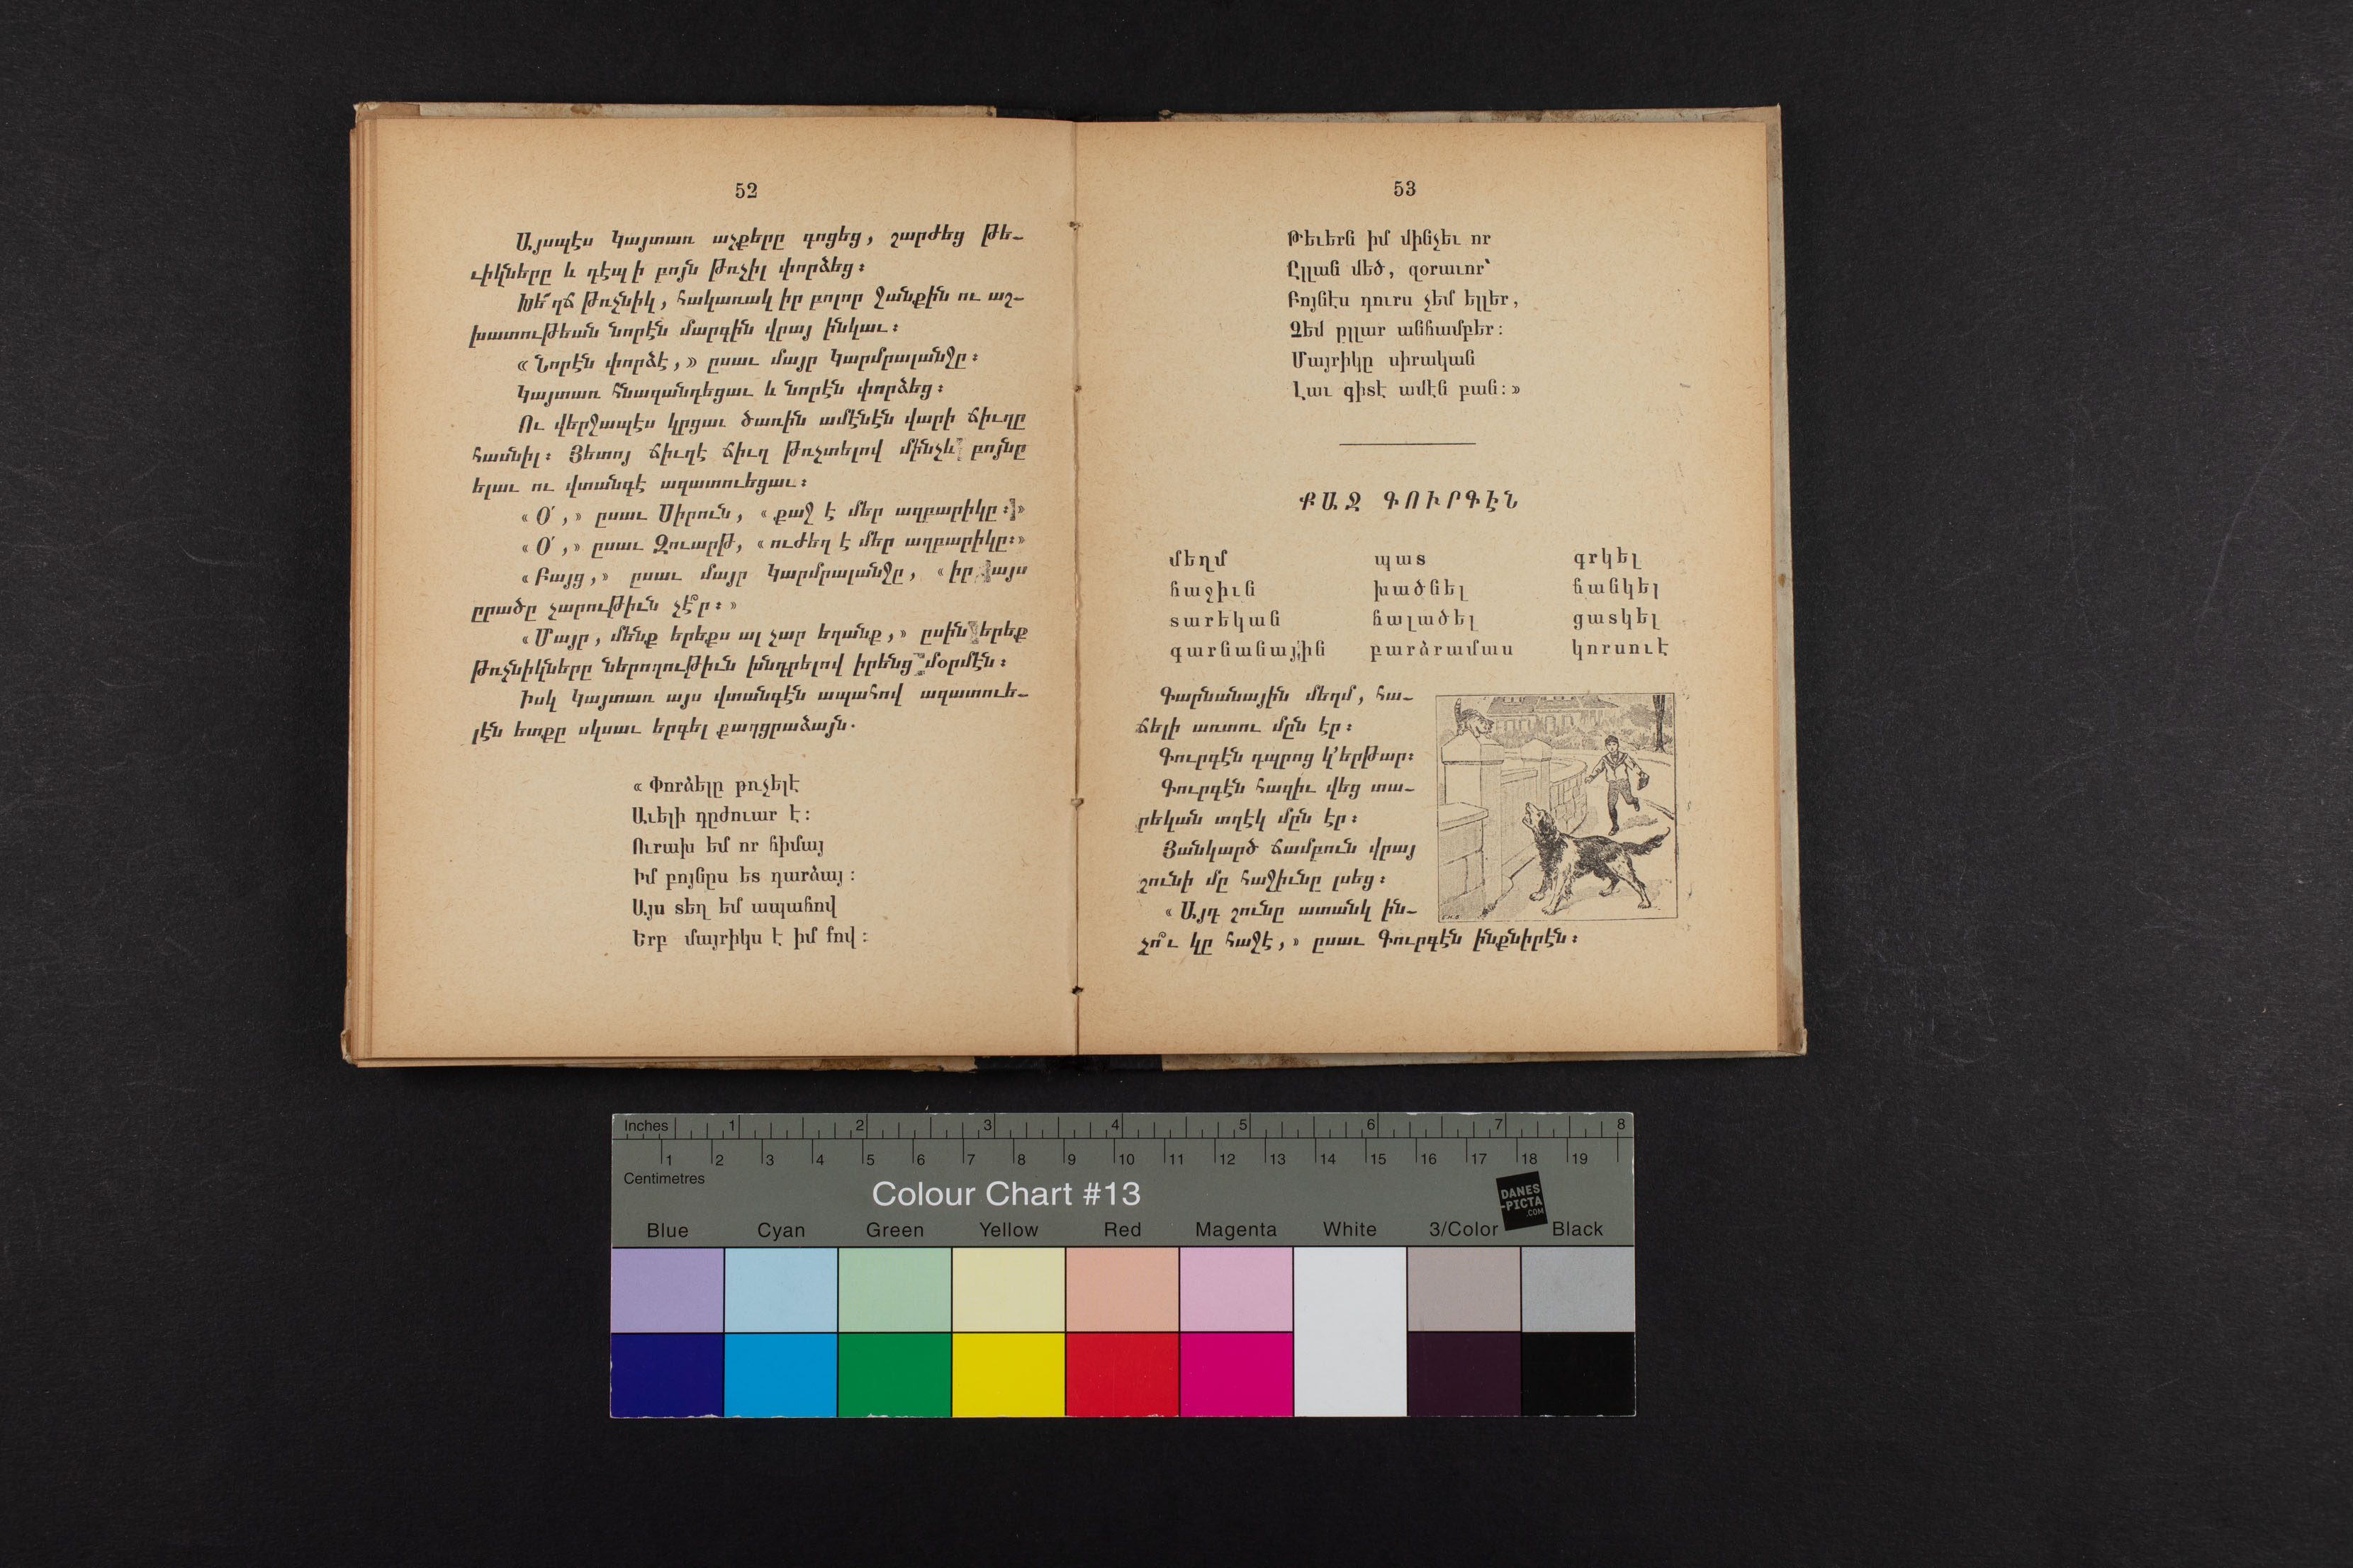 52
Այսպէս Կայտառ աչքերը գոցեց, շարժեց թե-
ւիկները և դէպ ի բոյն թռչիլ փորձեց։
Խե՜ղճ թռչնիկ, հակառակ իր բոլոր ջանքին ու աշ-
խատութեան նորէն մարգին վրայ ինկաւ։
«Նորէն փորձէ,» ըսաւ մայր Կարմրալանջը։
Կայտառ հնազանդեցաւ և նորէն փորձեց։
Ու վերջապէս կրցաւ ծառին ամէնէն վարի ճիւղը
հասնիլ։ Յետոյ ճիւղէ ճիւղ թռչտելով մինչև բոյնը
ելաւ ու վտանգէ ազատուեցաւ։
«Օ՛,» ըսաւ Սիրուն, «քաջ է մեր աղբարիկը։»
«Օ՛,» ըսաւ Զուարթ, «ուժեղ է մեր աղբարիկը։»
«Բայց,» ըսաւ մայր Կարմրալանջը, «իր այս
ըրածը չարութիւն չէ՞ր։»
«Մայր, մենք երեքս ալ չար եղանք,» ըսին երեք
թռչնիկները ներողութիւն խնդրելով իրենց մօրմէն։
Իսկ Կայտառ այս վտանգէն ապահով ազատուե-
լէն ետքը սկսաւ երգել քաղցրաձայն.
«Փորձելը թռչելէ
Աւելի դըժուար է։
Ուրախ եմ որ հիմայ
Իմ բոյնըս ետ դարձայ։
Այս տեղ եմ ապահով
Երբ մայրիկս է իմ քով։
53
Թեւերն իմ մինչեւ որ
Ըլլան մեծ, զօրաւոր՝
Բոյնէս դուրս չեմ ելլեր,
Չեմ ըլլար անհամբեր։
Մայրիկը սիրական
Լաւ գիտէ ամէն բան։»
ՔԱՋ ԳՈՒՐԳԷՆ
մեղմ պատ գրկել
հաջիւն խածնել հանկել
տարեկան հալածել ցատկել
գարնանային բարձրամաս կորսուէ
Գարնանային մեղմ, հա-
ճելի առտու մըն էր։
Գուրգէն դպրոց կ՚երթար։
Գուրգէն հազիւ վեց տա-
րեկան տղէկ մըն էր։
Յանկարծ ճամբուն վրայ
շունի մը հաջիւնը լսեց։
«Այդ շունը ատանկ ին-
չո՞ւ կը հաջէ,» ըսաւ Գուրգէն ինքնիրէն։
Inches 1 2 3 4 5 6 7 8
1 2 3 4 5 6 7 8 9 10 11 12 13 14 15 16 17 18 19
Centimetres
Colour Chart #13
DANES
-PICTA
.COM
Blue Cyan Green Yellow Red Magenta White 3/Color Black